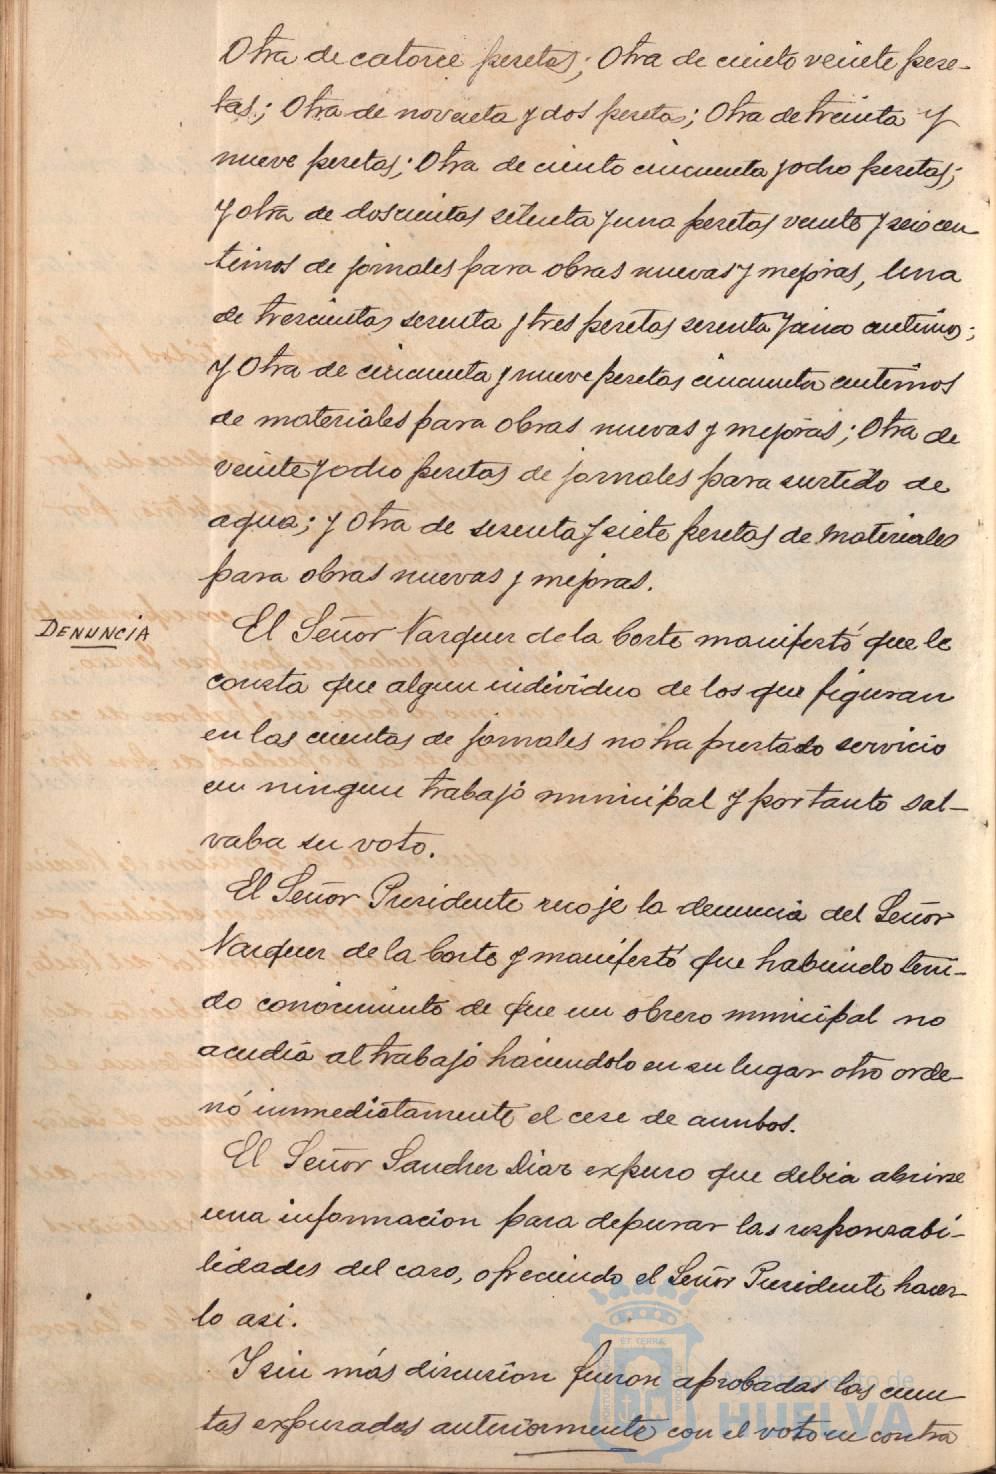 Otra de catorce pesetas; Otra de ciento veinte pese-
tas; Otra de noventa y dos pesetas; Otra de treinta y
nueve pesetas; Otra de ciento cincuenta y ocho pesetas;
y otra de doscientas setenta y una pesetas veinte y seis cen
timos de jornales para obras nuevas y mejoras, Una
de trescientas sesenta y tres pesetas sesenta y cinco centimos;
y Otra de cincuenta y nueve pesetas cincuenta centimos
de materiales para obras nuevas y mejoras; Otra de
veinte y ocho pesetas de jornales para surtido de
agua; y Otra de sesenta y siete pesetas de materiales
para obras nuevas y mejoras.
DENUNCIA
El Señor Vazquez de la Corte manifestó que le
consta que algun individuo de los que figuran
en las cuentas de jornales no ha prestado servicio
en ningun trabajo municipal y por tanto sal-
vaba su voto.
El Señor Presidente recoje la denuncia del Señor
Vazquez de la Corte y manifestó que habiendo teni-
do conocimiento de que un obrero municipal no
acudia al trabajo haciendolo en su lugar otro orde-
nó inmediatamente el cese de ambos.
El Señor Sanchez Diaz expuso que debia abrirse
una informacion para depurar las responsabi-
lidades del caso, ofreciendo el Señor Presidente hacer-
lo asi.
Y sin más discusion fueron aprobadas las cuen
tas expresadas anteriormente con el voto en contra
ET TERRÆ
Ayuntamiento de
HUELVA